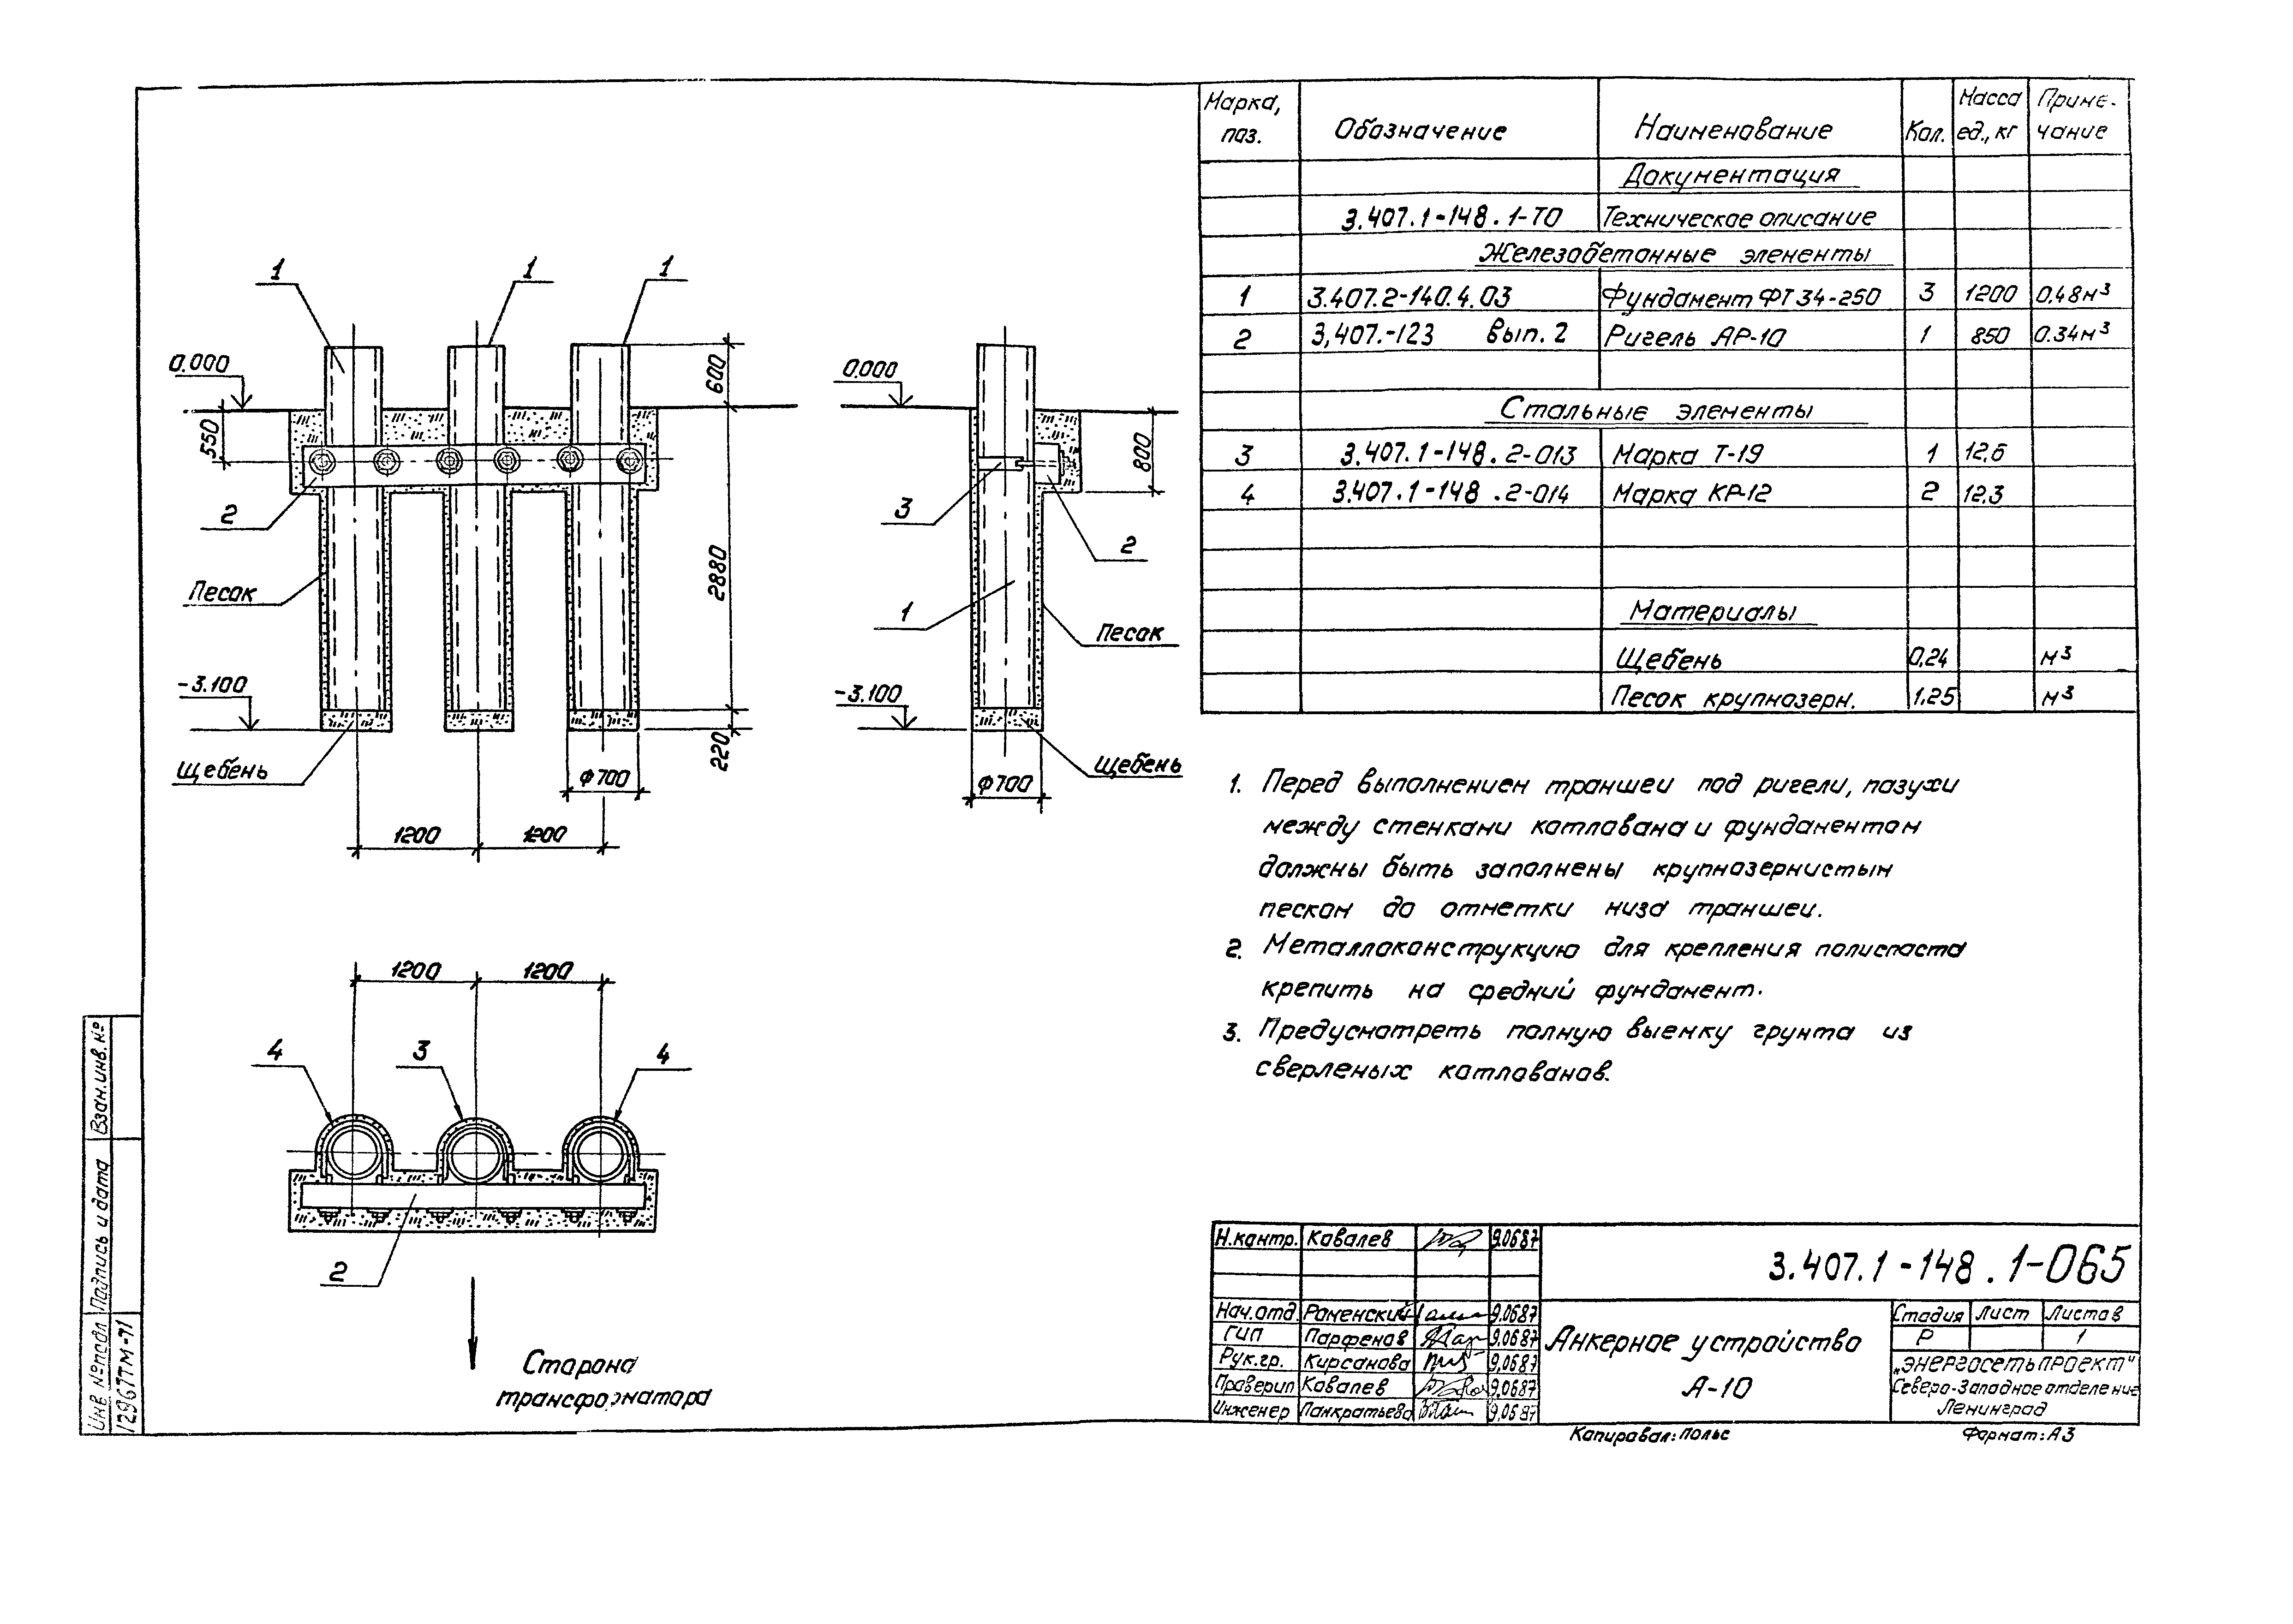 1
1
1
0.000
550
600
2880
220
2
Песок
-3.100
Щебень
Ф700
1200
1200
0.000
800
3
2
1
Песок
-3.100
Щебень
Ф700
1200
1200
4
3
4
2
Сторона
трансформатора
Марка, поз. Обозначение Наименование Кол. Масса ед., кг Приме-чание
Документация
3.407.1-148.1-ТО Техническое описание
Железобетонные элементы
1 3.407.2-140.4.03 Фундамент ФТ34-250 3 1200 0.48м³
2 3,407.-123 вып. 2 Ригель АР-10 1 850 0.34м³
Стальные элементы
3 3.407.1-148.2-013 Марка Т-19 1 12.6
4 3.407.1-148.2-014 Марка КР-12 2 12.3
Материалы
Щебень 0,24 м³
Песок крупнозерн. 1,25 м³
1. Перед выполнением траншеи под ригели, пазухи
между стенками котлована и фундаментом
должны быть заполнены крупнозернистым
песком до отметки низа траншеи.
2. Металлоконструкцию для крепления полиспаста
крепить на средний фундамент.
3. Предусмотреть полную выемку грунта из
сверленых котлованов.
Н.контр. Ковалев 9.0687
3.407.1-148.1-065
Нач.отд. Роменский 9.0687
ГИП Парфенов 9.0687
Рук.гр. Кирсанова 9.0687
Проверил Ковалев 9.0687
Инженер Панкратьева 9.0687
Анкерное устройство
А-10
Стадия Лист Листов
Р 1
„Энергосетьпроект"
Северо-Западное отделение
Ленинград
Копировал: Польс Формат: А3
Инв № подл Подпись и дата Взам.инв.№
12967ТМ-71